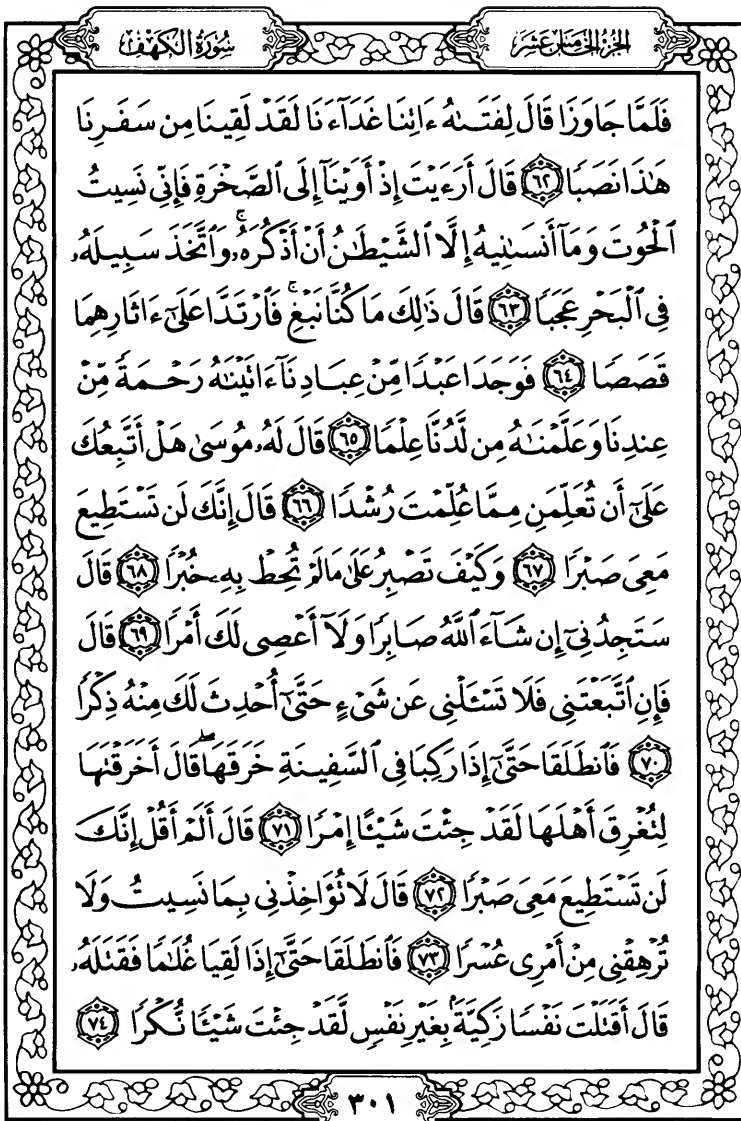 سُورَةُ الكَهْفِ
الجزء الخامس عشر
فَلَمَّا جَاوَزَا قَالَ لِفَتَىٰهُ ءَاتِنَا غَدَآءَنَا لَقَدْ لَقِينَا مِن سَفَرِنَا
هَٰذَا نَصَبًا ٦٢ قَالَ أَرَءَيْتَ إِذْ أَوَيْنَآ إِلَى ٱلصَّخْرَةِ فَإِنِّى نَسِيتُ
ٱلْحُوتَ وَمَآ أَنسَىٰنِيهُ إِلَّا ٱلشَّيْطَٰنُ أَنْ أَذْكُرَهُۥۚ وَٱتَّخَذَ سَبِيلَهُۥ
فِى ٱلْبَحْرِ عَجَبًا ٦٣ قَالَ ذَٰلِكَ مَا كُنَّا نَبْغِۚ فَٱرْتَدَّا عَلَىٰٓ ءَاثَارِهِمَا
قَصَصًا ٦٤ فَوَجَدَا عَبْدًا مِّنْ عِبَادِنَآ ءَاتَيْنَٰهُ رَحْمَةً مِّنْ
عِندِنَا وَعَلَّمْنَٰهُ مِن لَّدُنَّا عِلْمًا ٦٥ قَالَ لَهُۥ مُوسَىٰ هَلْ أَتَّبِعُكَ
عَلَىٰٓ أَن تُعَلِّمَنِ مِمَّا عُلِّمْتَ رُشْدًا ٦٦ قَالَ إِنَّكَ لَن تَسْتَطِيعَ
مَعِىَ صَبْرًا ٦٧ وَكَيْفَ تَصْبِرُ عَلَىٰ مَا لَمْ تُحِطْ بِهِۦ خُبْرًا ٦٨ قَالَ
سَتَجِدُنِىٓ إِن شَآءَ ٱللَّهُ صَابِرًا وَلَآ أَعْصِى لَكَ أَمْرًا ٦٩ قَالَ
فَإِنِ ٱتَّبَعْتَنِى فَلَا تَسْـَٔلْنِى عَن شَىْءٍ حَتَّىٰٓ أُحْدِثَ لَكَ مِنْهُ ذِكْرًا
٧٠ فَٱنطَلَقَا حَتَّىٰٓ إِذَا رَكِبَا فِى ٱلسَّفِينَةِ خَرَقَهَاۖ قَالَ أَخَرَقْتَهَا
لِتُغْرِقَ أَهْلَهَا لَقَدْ جِئْتَ شَيْـًٔا إِمْرًا ٧١ قَالَ أَلَمْ أَقُلْ إِنَّكَ
لَن تَسْتَطِيعَ مَعِىَ صَبْرًا ٧٢ قَالَ لَا تُؤَاخِذْنِى بِمَا نَسِيتُ وَلَا
تُرْهِقْنِى مِنْ أَمْرِى عُسْرًا ٧٣ فَٱنطَلَقَا حَتَّىٰٓ إِذَا لَقِيَا غُلَٰمًا فَقَتَلَهُۥ
قَالَ أَقَتَلْتَ نَفْسًا زَكِيَّةًۢ بِغَيْرِ نَفْسٍ لَّقَدْ جِئْتَ شَيْـًٔا نُّكْرًا ٧٤
٣٠١